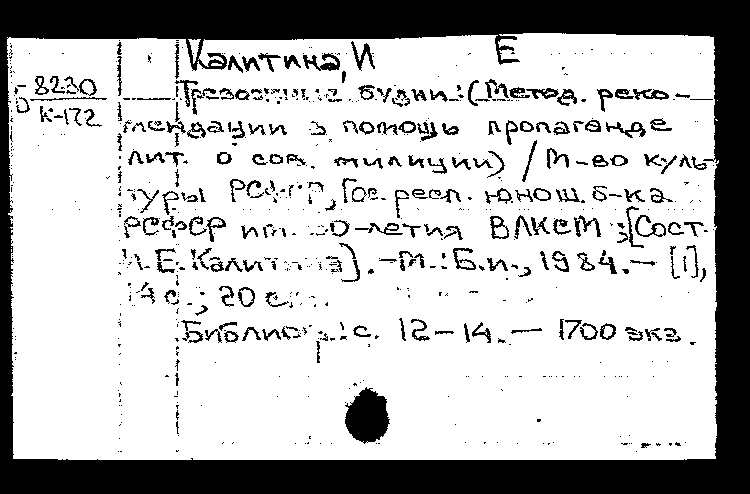 Калитина, И Е
Б 8230
К-172
Тревожные будни: (Метод. реко-
мендации в помощь пропаганде
лит. о сов. милиции) / М-во куль-
туры РСФСР, Гос. респ. юнош. б-ка
РСФСР им. 50-летия ВЛКСМ; [Сост.
И. Е. Калитина]. - М.: Б.и., 1984. - [1],
14 с.; 20 см.
Библиогр.: с. 12-14. - 1700 экз.